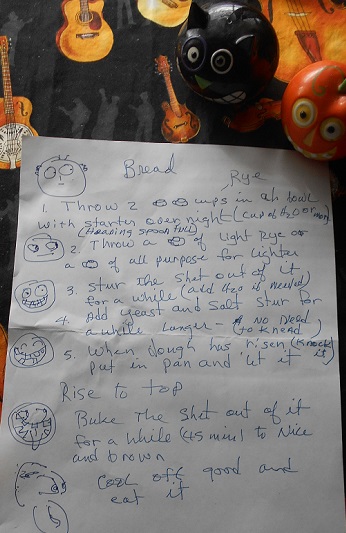 Bread
Rye
1. Throw 2 cups in a bowl
with starter over night (cup of H2O or more)
(Heaping spoon full)
2. Throw a of light Rye or
a of all purpose for lighter
3. Stur the shit out of it
for a while (add H2O if needed)
4. Add yeast and salt stur for
a while longer - (No need to knead)
5. When dough has risen (knock it)
put in pan and let it
Rise to top
Bake the shit out of it
for a while (45 min) to nice
and brown
Cool off good and
eat it